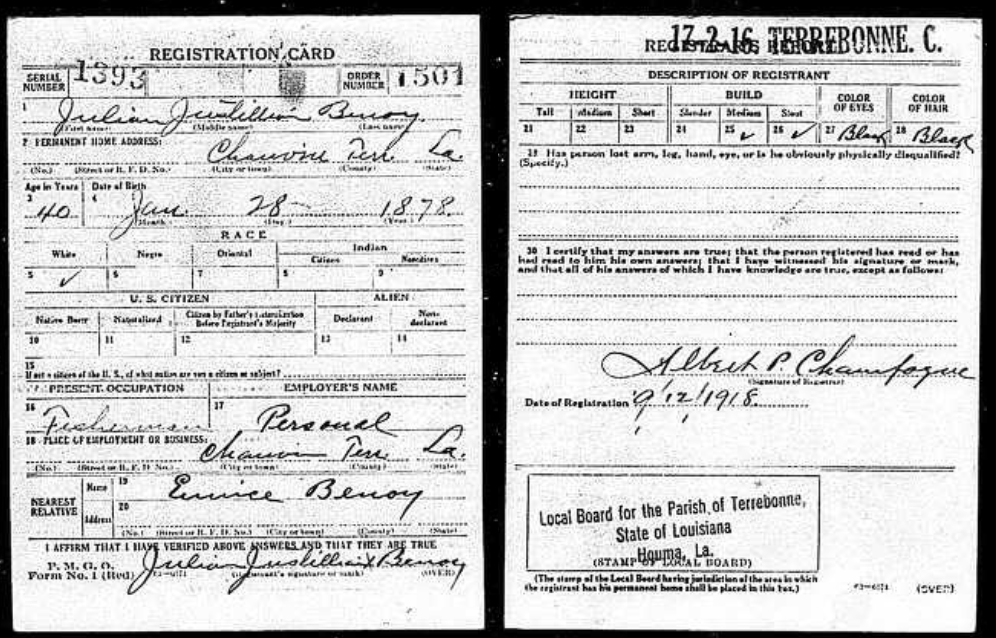 REGISTRATION CARD
SERIAL NUMBER 1393 ORDER NUMBER 1501
1 Julian Justillian Benoy
(First name) (Middle name) (Last name)
2 PERMANENT HOME ADDRESS:
Chauvin Terr. La.
(No.) (Street or R. F. D. No.) (City or town) (County) (State)
Age in Years Date of Birth
3 4
40 Jan. 28 1878.
(Month.) (Day.) (Year.)
RACE
White Negro Oriental Indian
Citizen Noncitizen
5 ✓ 6 7 8 9
U. S. CITIZEN ALIEN
Native Born Naturalized Citizen by Father's Naturalization Before Registrant's Majority Declarant Non-declarant
10 11 12 13 14
15
If not a citizen of the U. S., of what nation are you a citizen or subject?
PRESENT OCCUPATION EMPLOYER'S NAME
16 Fisherman 17 Personal
18 PLACE OF EMPLOYMENT OR BUSINESS:
Chauvin Terr. La.
(No.) (Street or R. F. D. No.) (City or town) (County) (State)
NEAREST RELATIVE
Name 19 Eunice Benoy
Address 20
(No.) (Street or R. F. D. No.) (City or town) (County) (State)
I AFFIRM THAT I HAVE VERIFIED ABOVE ANSWERS AND THAT THEY ARE TRUE
P. M. G. O.
Form No. 1 (Red) Julian Justillian X Benoy
(Registrant's signature or mark) (OVER)
17-2-16 TERREBONNE. C.
REGISTRAR'S REPORT
DESCRIPTION OF REGISTRANT
HEIGHT BUILD COLOR OF EYES COLOR OF HAIR
Tall Medium Short Slender Medium Stout
21 22 23 24 25 ✓ 26 ✓ 27 Black 28 Black
29 Has person lost arm, leg, hand, eye, or is he obviously physically disqualified?
(Specify.)
30 I certify that my answers are true; that the person registered has read or has
had read to him his own answers; that I have witnessed his signature or mark,
and that all of his answers of which I have knowledge are true, except as follows:
Albert P. Champagne
(Signature of Registrar)
Date of Registration 9/12/1918.
Local Board for the Parish of Terrebonne,
State of Louisiana
Houma, La.
(STAMP OF LOCAL BOARD)
(The stamp of the Local Board having jurisdiction of the area in which
the registrant has his permanent home shall be placed in this box.)
(OVER)